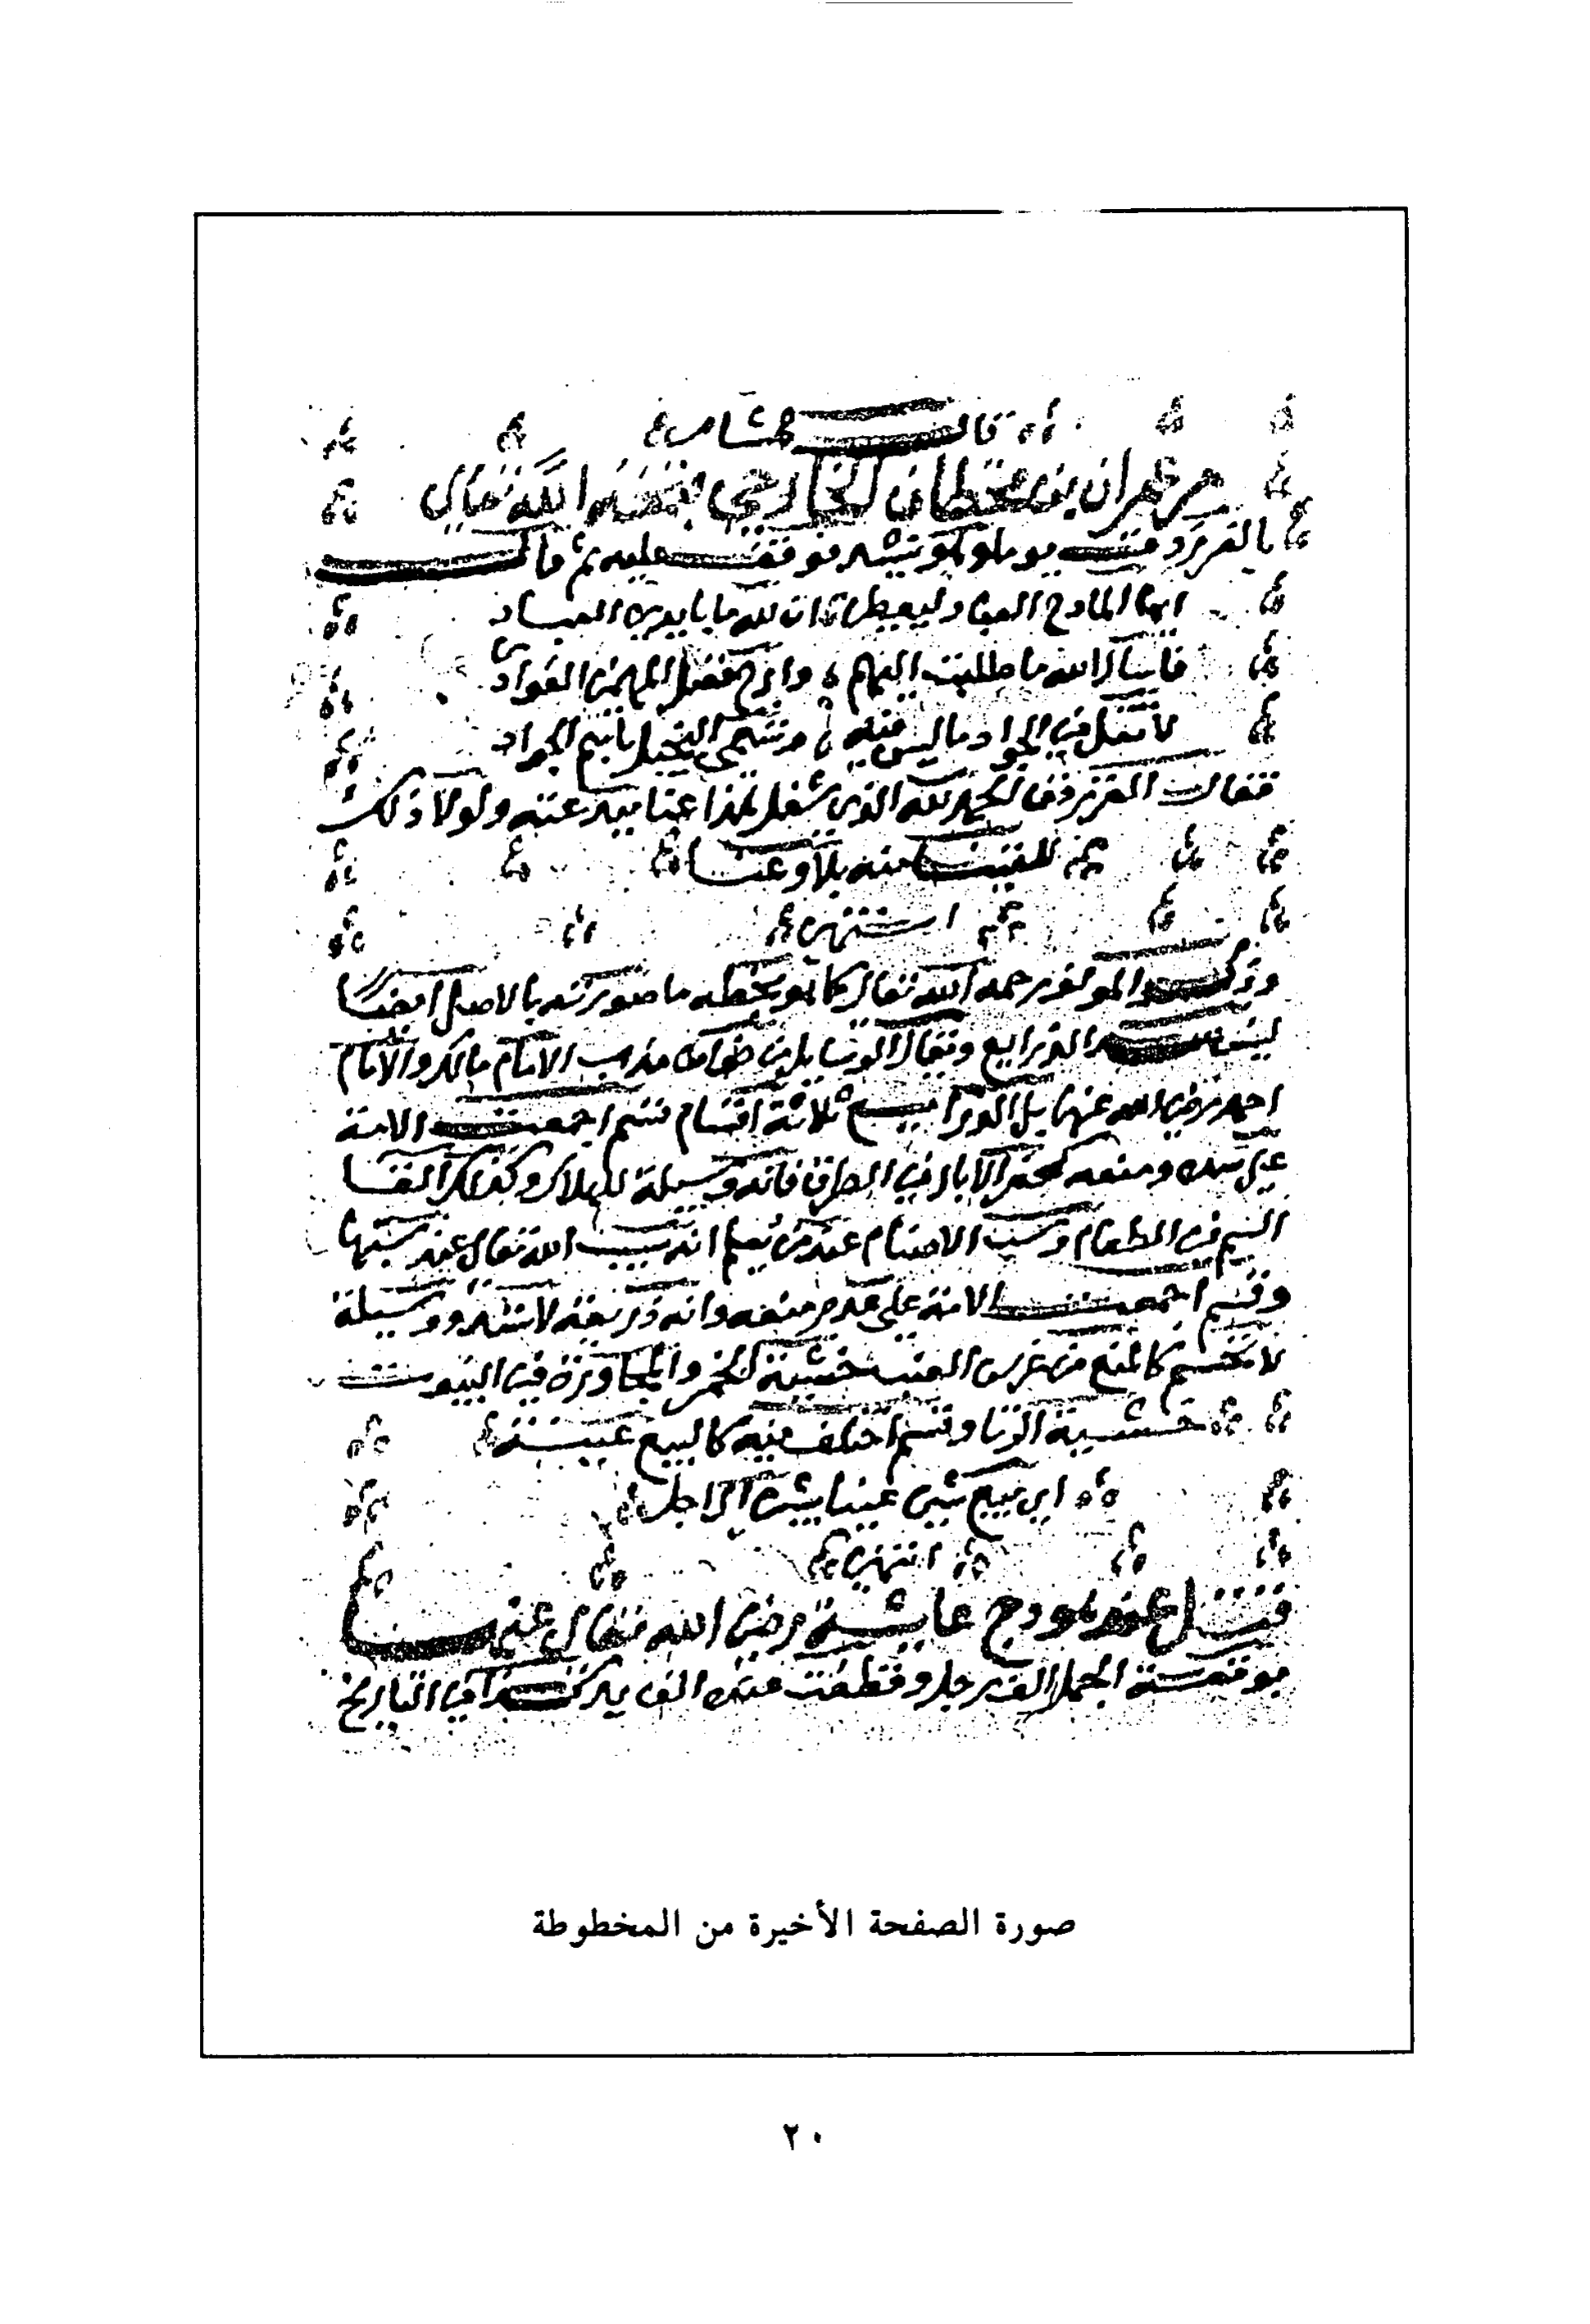 قال هشام
مر عمران بن حطان الخارجي بقبحه الله تعالى
بالفرزدق يوما وهو ينشد فوقف عليه ثم قال
ايها المادح العباد ليعطى ان لله ما بايدي العباد
فاسال الله ما طلبت اليهم وارج فضل المهيمن العواد
لا تقل في الجواد ما ليس فيه وتسمي البخيل باسم الجواد
فقال الفرزدق الحمد لله الذي شغل هذا عنا ببدعته ولولا ذلك
للقينا منه بلاء وعنا
انتهى
وذكر المولف رحمه الله تعالى كما هو بخطه ما صورته بالاصل ايضا
ليس سد الذرايع ويقال الوسايل من خواص مذهب الامام مالك والامام
احمد رضي الله عنهما بل الذرايع ثلاثة اقسام قسم اجمعت الامة
على سده ومنعه كحفر الابار في الطرق فانه وسيلة للهلاك وكذلك القا
السم في الطعام وسب الاصنام عند من يعلم انه يسب الله تعالى عند سبها
وقسم اجمعت الامة على عدم منعه وانه ذريعة لا تسد ووسيلة
لا تحسم كالمنع من غرس العنب خشية الخمر والمجاورة في البيوت
خشية الزنا وقسم اختلف فيه كالبيع عينة
اي بيع شي عينا بشي الى اجل
انتهى
قتل عند هودج عايشة رضي الله تعالى عنها
بوقعة الجمل الف رجل وقطعت عنده الف يد كذا في التاريخ
صورة الصفحة الأخيرة من المخطوطة
٢٠